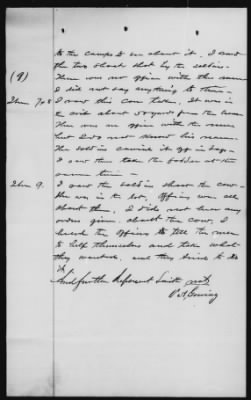 to the camps to see about it, I saw
the two shoats shot by the soldiers.
There was no officer with the men
I did not say anything to them -
(9)
Item 7 & 8 I saw this corn taken, It was in
the crib about 50 yards from the house
There was an officer with the men
but I do not know his name.
The soldiers carried it off in bags -
I saw them take the fodder at the
same time -
Item 9. I saw the soldiers shoot the cow.
She was in the lot, Officers were all
about there, I did not hear any
orders given about the cow, I
heard the officers to tell the men
to help themselves and take what
they wanted, and they tried to do
it,
And further deponent saith not